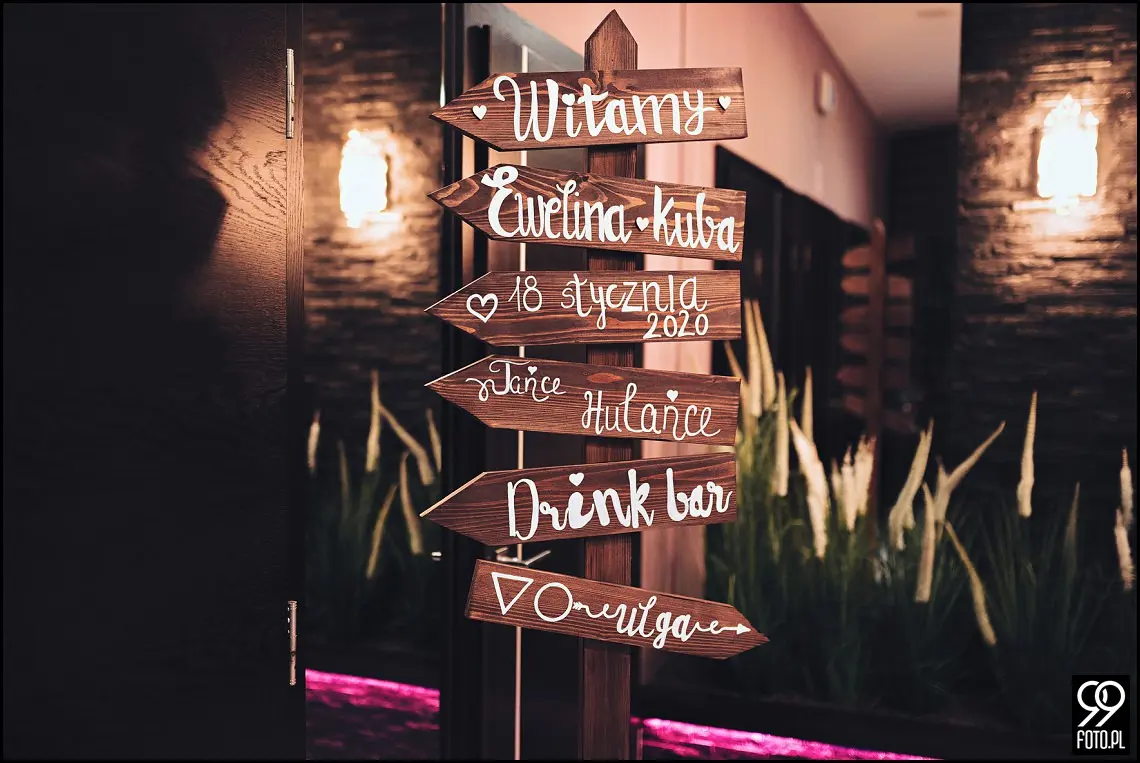 Witamy
Ewelina Kuba
18 stycznia
2020
Tańce
Hulańce
Drink bar
ulga
99
FOTO.PL